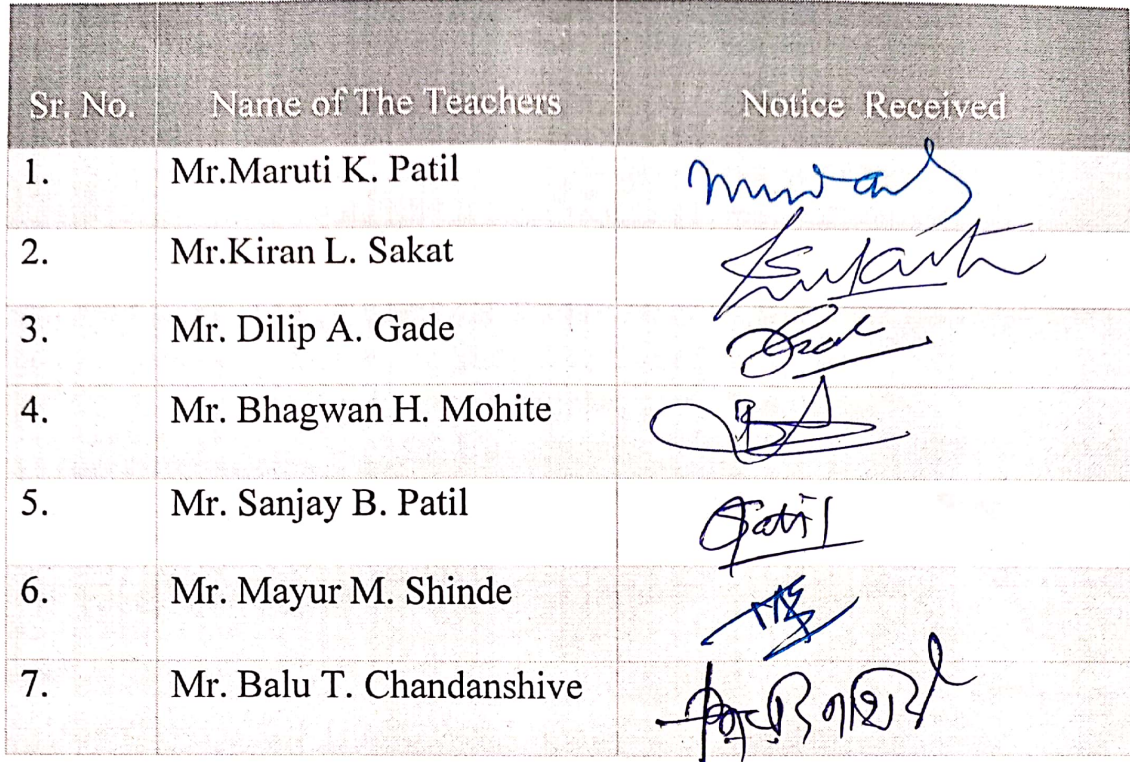 Sr. No. Name of The Teachers Notice Received
1. Mr.Maruti K. Patil
2. Mr.Kiran L. Sakat
3. Mr. Dilip A. Gade
4. Mr. Bhagwan H. Mohite
5. Mr. Sanjay B. Patil Patil
6. Mr. Mayur M. Shinde
7. Mr. Balu T. Chandanshive